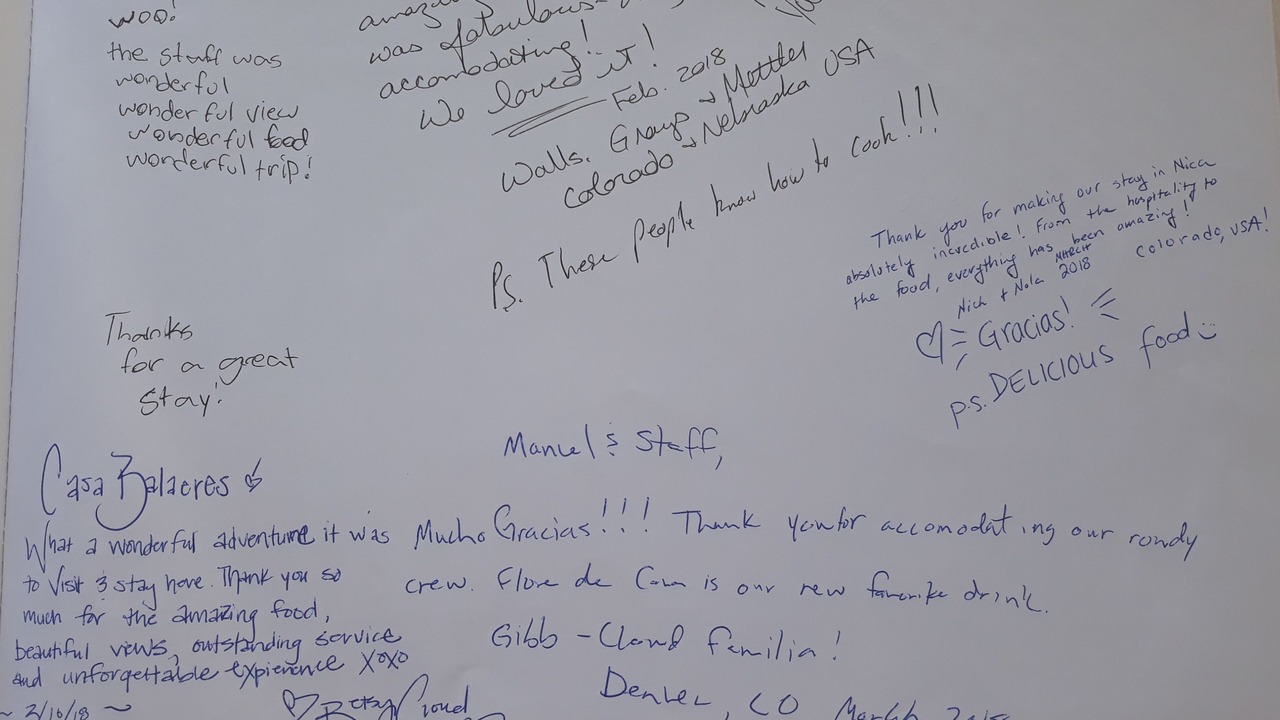 woo!
the staff was
wonderful
wonderful view
wonderful food
wonderful trip!
was fabulous
accomodating!
We loved it!
Feb. 2018
Walls, Grays & Mettler
Colorado & Nebraska USA
Ps. These people know how to cook!!!
Thank you for making our stay in Nica
absolutely incredible! From the hospitality to
the food, everything has been amazing!
Nick + Nola MARCH 2018 Colorado, USA!
Gracias!
p.s. DELICIOUS food
Thanks
for a great
stay!
Casa Balacres
What a wonderful adventure it was
to visit & stay here. Thank you so
much for the amazing food,
beautiful views, outstanding service
and unforgettable experience XOXO
~ 3/10/18 ~
Betsy Cloud
Manuel & Staff,
Mucho Gracias!!! Thank you for accomodating our rowdy
crew. Flore de Cana is our new favorite drink.
Gibb - Cloud familia!
Denver, CO March